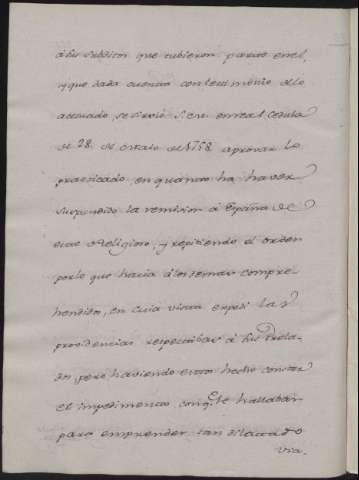 á sus subditos que tubieron parte en él,
y que dada cuenta con testimonio de lo
actuado, se sirvió S. en real Cedula
de 28. de Octubre de 1758 aprovar lo
practicado, en quanto ha haver
suspendido la remision á España de
este Religioso, y repitiendo el orden
por lo que hacía á los demas compre-
hendidos, en cuia vista expedí las
providencias respectibas á sus Prela-
dos, pero haviendo estos hecho constar
el impedimento con q.e se hallaban
para emprender tan dilatado
via.